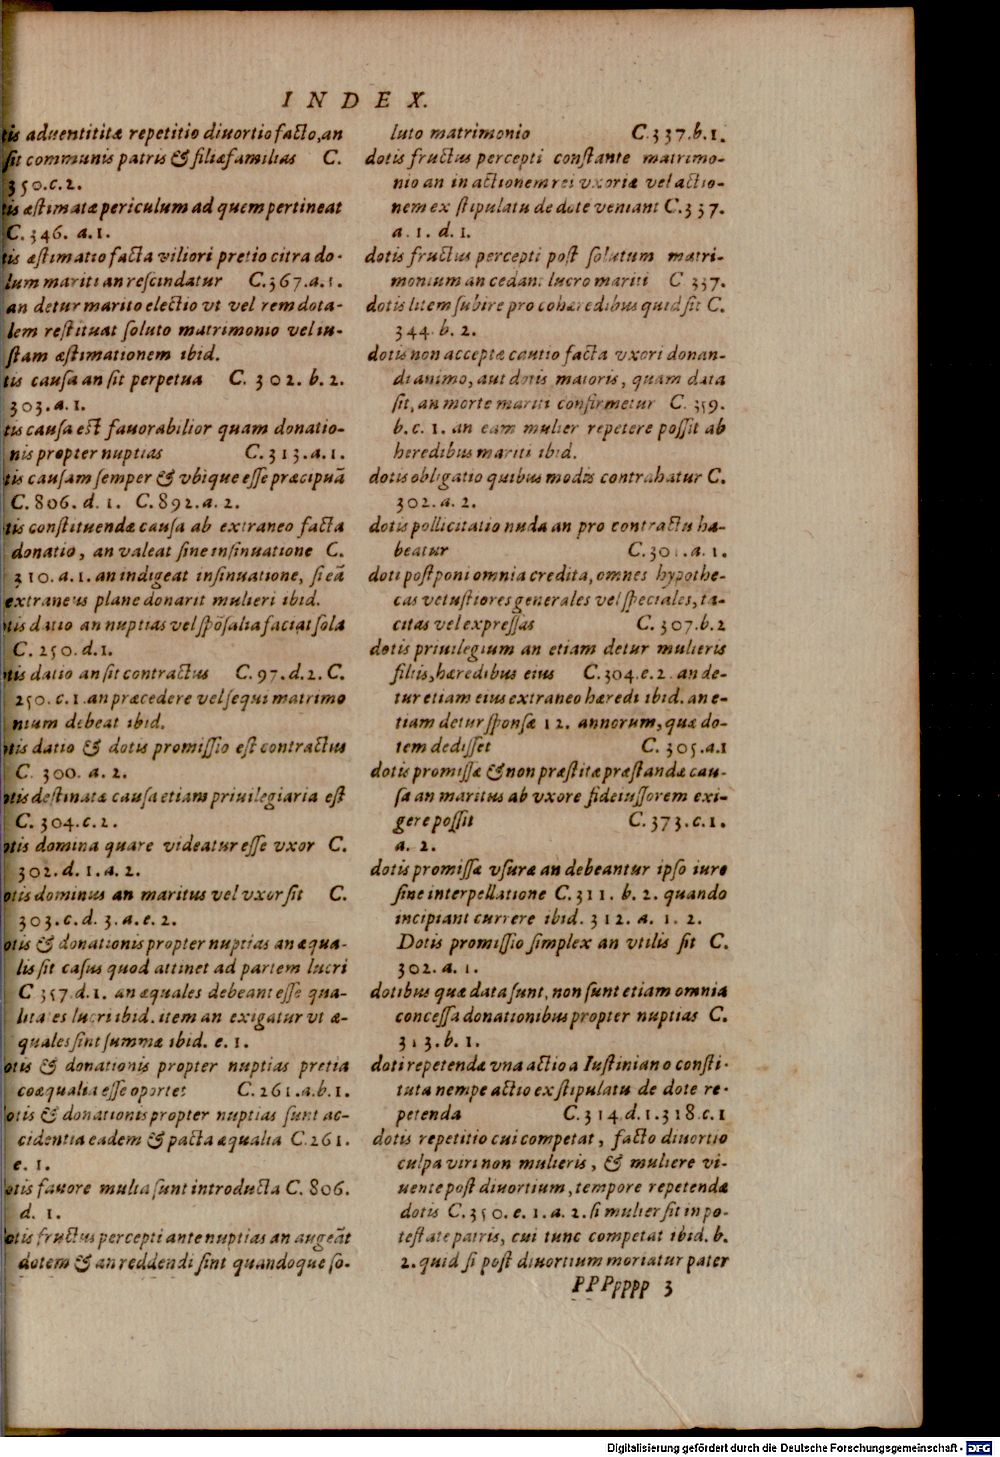 INDEX.
tis aduentitiæ repetitio diuortio facto, an
sit communis patris & filiæfamilias C.
350.c.2.
tis æstimatæ periculum ad quem pertineat
C.346. a.1.
tis æstimatio facta viliori pretio citra do-
lum mariti an rescindatur C.367.a.1.
an detur marito electio vt vel rem dota-
lem restituat soluto matrimonio vel iu-
stam æstimationem ibid.
tis causa an sit perpetua C. 302. b. 2.
303.a.1.
tis causa est fauorabilior quam donatio-
nis propter nuptias C.313.a.1.
tis causam semper & vbique esse præcipuã
C. 806. d. 1. C. 892.a. 2.
tis constituendæ causa ab extraneo facta
donatio, an valeat sine insinuatione C.
310.a.1. an indigeat insinuatione, si eã
extraneus plane donarit mulieri ibid.
tis datio an nuptias vel spõsalia faciat sola
C. 250.d.1.
tis datio an sit contractus C.97.d.2. C.
250.c.1. an præcedere vel sequi matrimo
nium debeat ibid.
otis datio & dotis promissio est contractus
C. 300. a. 2.
otis destinatæ causa etiam priuilegiaria est
C. 304.c.2.
otis domina quare videatur esse vxor C.
302.d.1.a.2.
otis dominus an maritus vel vxor sit C.
303.c.d. 3.a.e.2.
otis & donationis propter nuptias an æqua-
lis sit casus quod attinet ad partem lucri
C 357.d.1. an æquales debeant esse qua-
litates lucri ibid. item an exigatur vt æ-
quales sint summæ ibid. e. 1.
otis & donationis propter nuptias pretia
coæqualia esse oportet C.261.a.b.1.
otis & donationis propter nuptias sunt ac-
cidentia eadem & pacta æqualia C.261.
e. 1.
otis fauore multa sunt introducta C. 806.
d. 1.
otis fructus percepti ante nuptias an augeãt
dotem & an reddendi sint quandoque so-
luto matrimonio C.337.b.1.
dotis fructus percepti constante matrimo-
nio an in actionem rei vxoriæ vel actio-
nem ex stipulatu de dote veniant C.337.
a. 1. d. 1.
dotis fructus percepti post solutum matri-
monium an cedant lucro mariti C 337.
dotis litem subire pro cohæredibus quid sit C.
344. b. 2.
dotis non acceptæ cautio facta vxori donan-
di animo, aut dotis maioris, quam data
sit, an morte mariti confirmetur C. 359.
b.c. 1. an eam mulier repetere possit ab
heredibus mariti ibid.
dotis obligatio quibus modis contrahatur C.
302.a.2.
dotis pollicitatio nuda an pro contractu ha-
beatur C.301.a.1.
doti postponi omnia credita, omnes hypothe-
cas vetustiores generales vel speciales, ta-
citas vel expressas C. 307.b.2
dotis priuilegium an etiam detur mulieris
filiis, hæredibus eius C.304.e.2. an de-
tur etiam eius extraneo hæredi ibid. an e-
tiam detur sponsæ 12. annorum, quæ do-
tem dedisset C. 305.a.1
dotis promissæ & non præstitæ præstandæ cau-
sa an maritus ab vxore fideiussorem exi-
gere possit C.373.c.1.
a. 2.
dotis promissæ vsuræ an debeantur ipso iure
sine interpellatione C.311. b. 2. quando
incipiant currere ibid. 312. a. 1. 2.
Dotis promissio simplex an vtilis sit C.
302.a.1.
dotibus quæ data sunt, non sunt etiam omnia
concessa donationibus propter nuptias C.
313.b.1.
doti repetendæ vna actio a Iustiniano consti-
tuta nempe actio ex stipulatu de dote re-
petenda C.314.d.1.318.c.1
dotis repetitio cui competat, facto diuortio
culpa viri non mulieris, & muliere vi-
uente post diuortium, tempore repetendæ
dotis C.350.e.1.a.2. si mulier sit in po-
testate patris, cui tunc competat ibid. b.
2. quid si post diuortium moriatur pater
PPPpppp 3
Digitalisierung gefördert durch die Deutsche Forschungsgemeinschaft - DFG